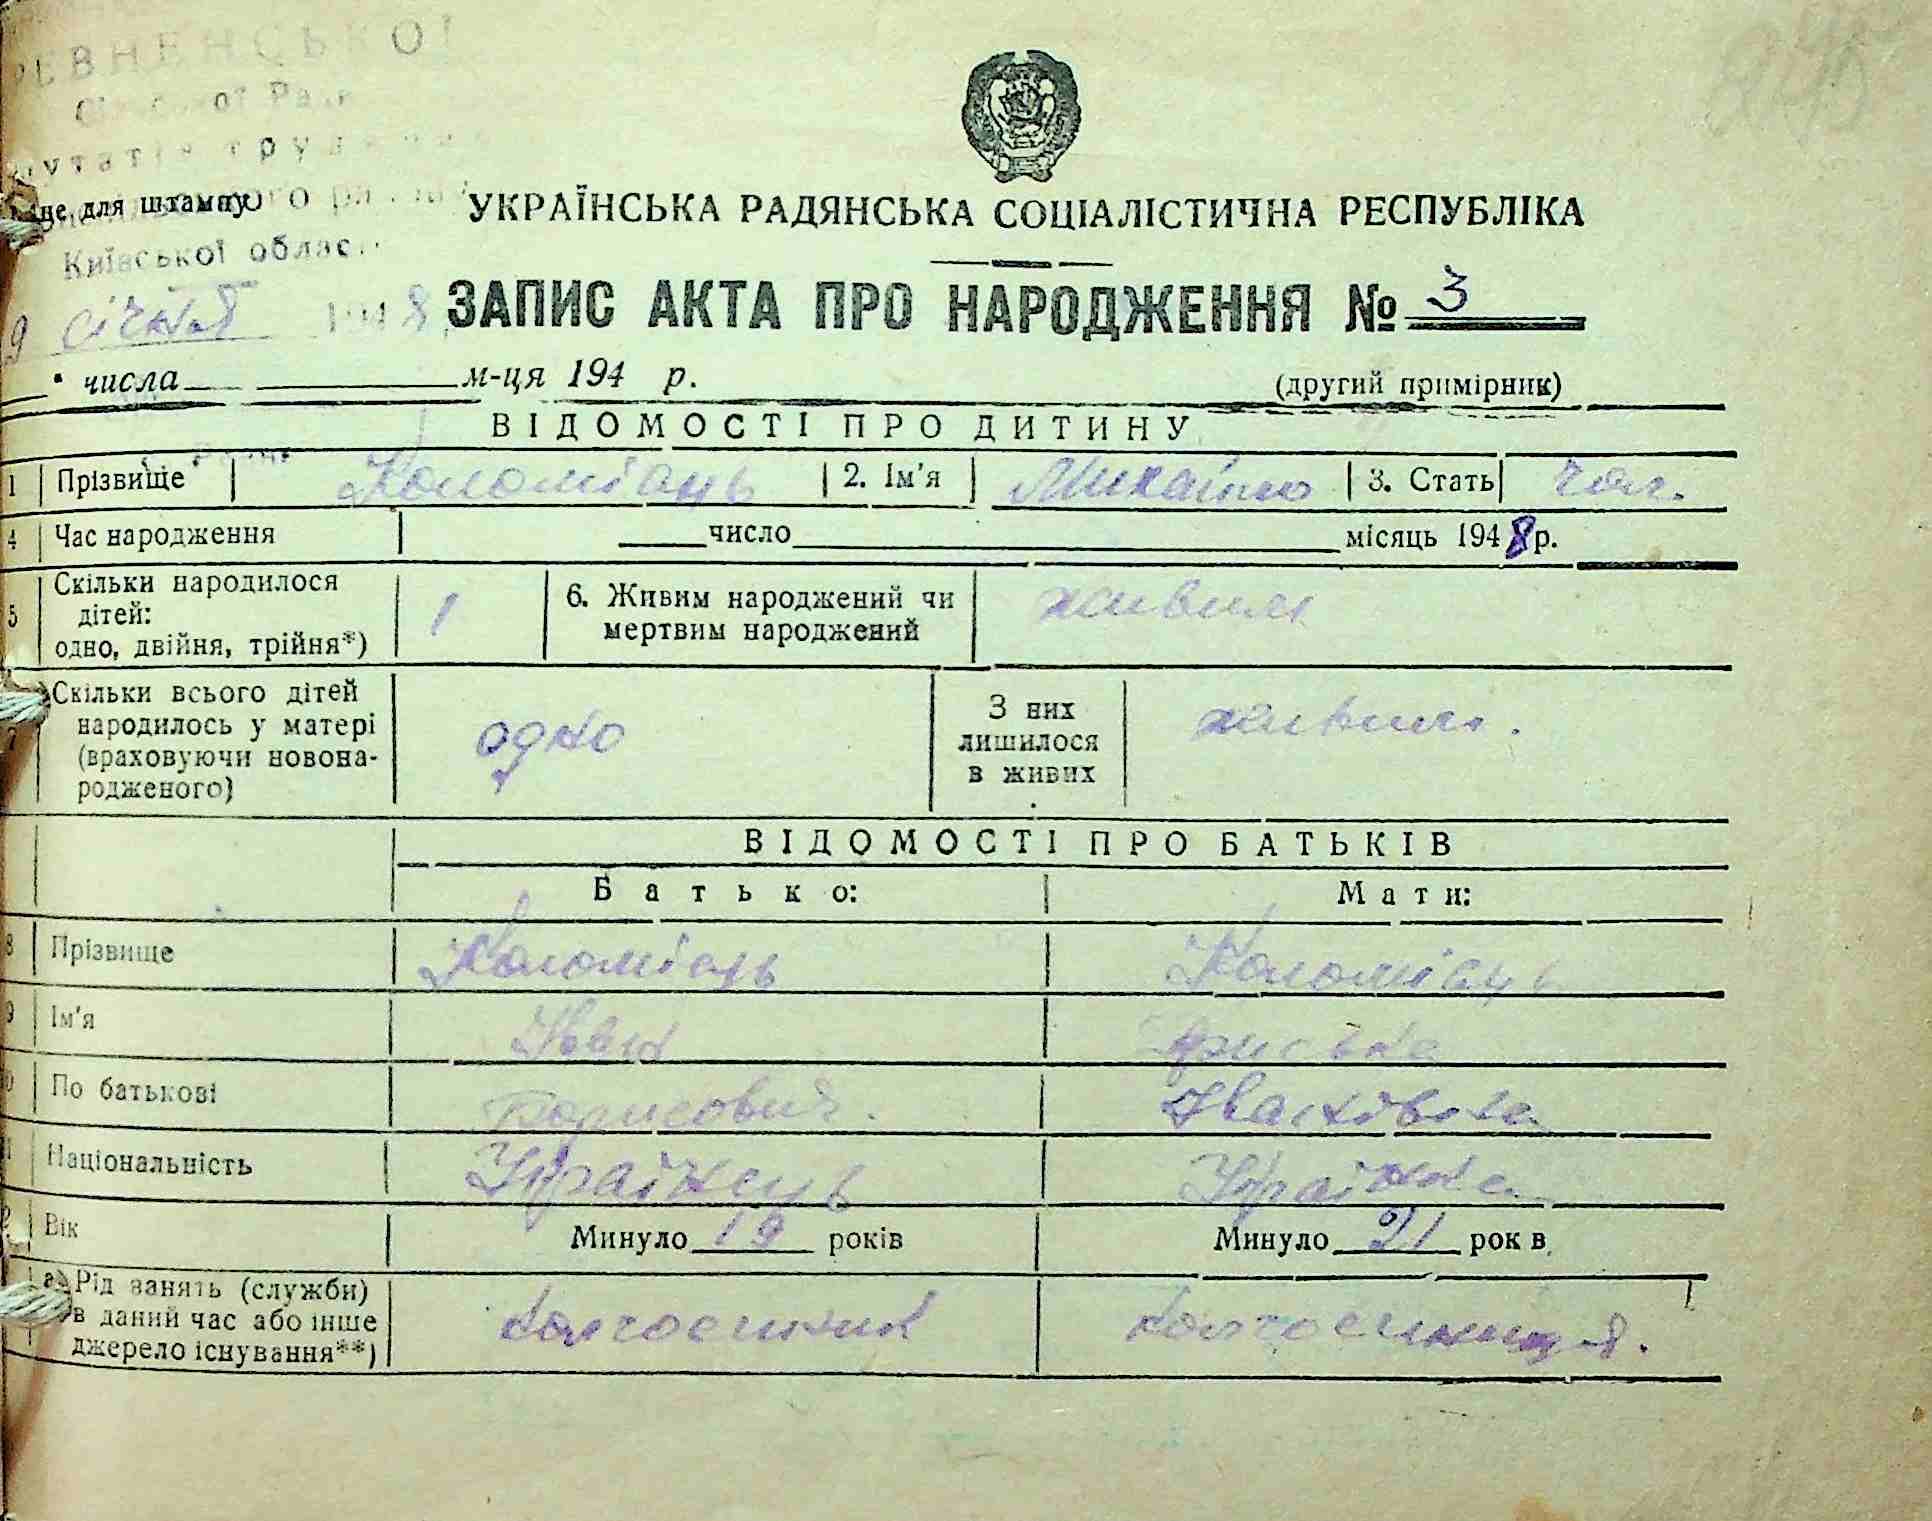 РЕВНЕНСЬКОЇ
Сільської Ради
утатів трудящих
го району
не для штампу
Київської області
9 січня 1948
УКРАЇНСЬКА РАДЯНСЬКА СОЦІАЛІСТИЧНА РЕСПУБЛІКА
ЗАПИС АКТА ПРО НАРОДЖЕННЯ № 3
числа м-ця 194 р.
(другий примірник)
ВІДОМОСТІ ПРО ДИТИНУ
1 Прізвище Коломієць 2. Ім'я Михайло 3. Стать чол.
4 Час народження число місяць 1948 р.
5 Скільки народилося дітей: одно, двійня, трійня*) 1 6. Живим народжений чи мертвим народжений живим
7 Скільки всього дітей народилось у матері (враховуючи новонародженого) одно З них лишилося в живих живим.
ВІДОМОСТІ ПРО БАТЬКІВ
Батько: Мати:
8 Прізвище Коломієць Коломієць
9 Ім'я Іван Приська
По батькові Борисович. Іванівна
Національність Українець Українка
Вік Минуло 19 років Минуло 21 рок в
а) Рід занять (служби) в даний час або інше джерело існування**) колгоспник колгоспниця.